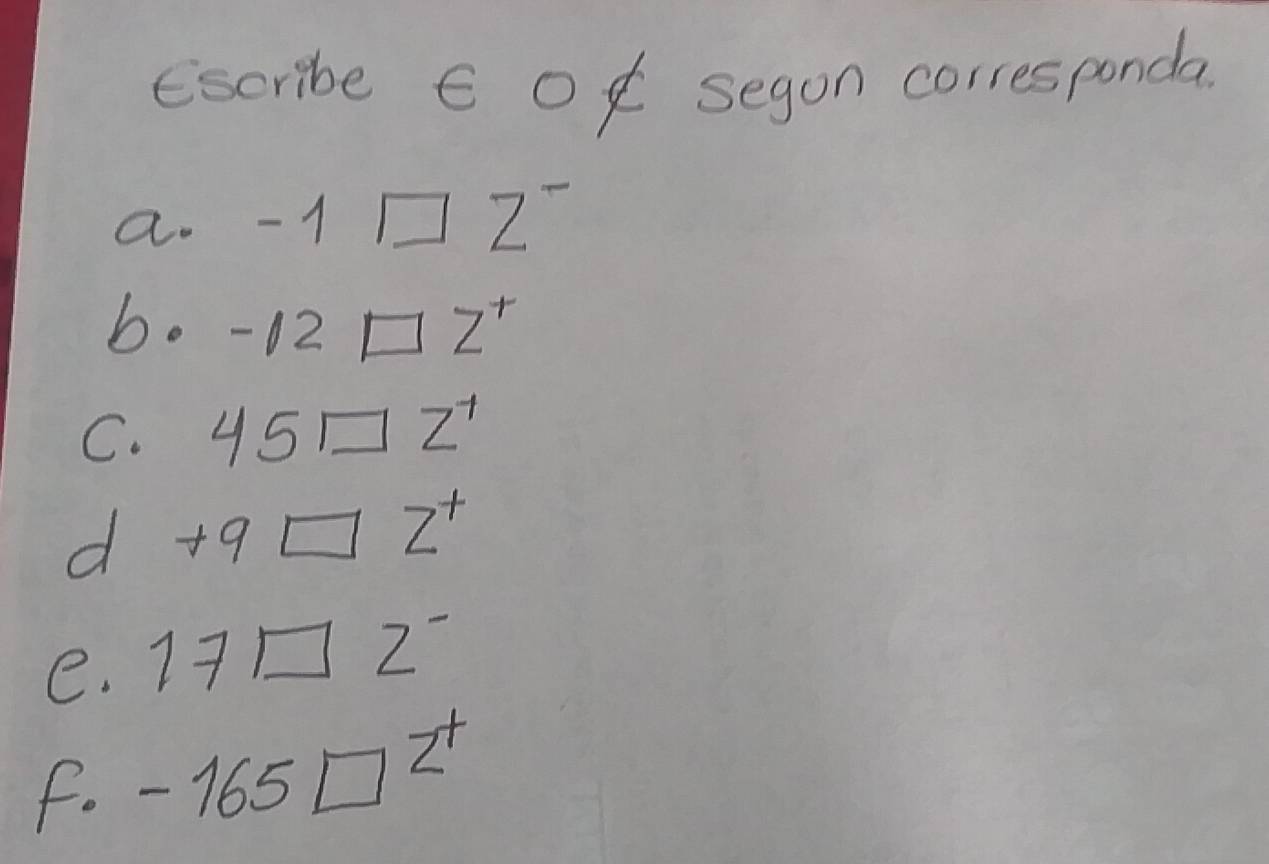 Escribe ∈ o ∉ segun corresponda.
a. -1 □ Z⁻
b. -12 □ Z⁺
c. 45 □ Z⁺
d +9 □ Z⁺
e. 17 □ Z⁻
f. -165 □ Z⁺